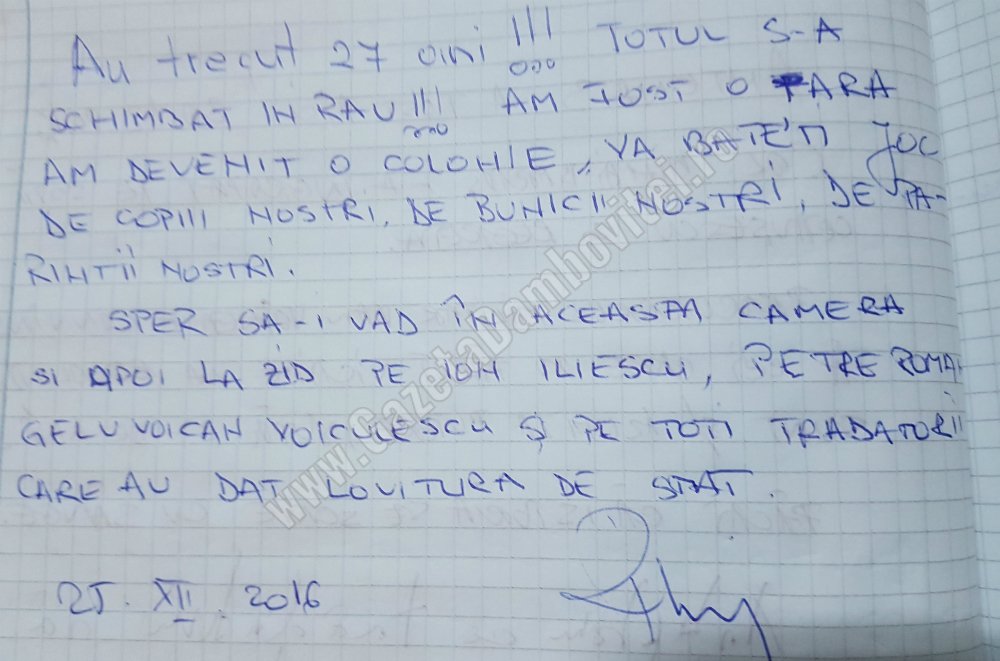 Au trecut 27 ani !!! TOTUL S-A
SCHIMBAT IN RAU !!!! AM FOST O TARA
AM DEVENIT O COLONIE, VA BATE'TI JOC
DE COPIII NOSTRI, DE BUNICII NOSTRI, DE PA-
RINTII NOSTRI.
SPER SĂ-I VAD ÎN ACEASTA CAMERA
SI APOI LA ZID PE ION ILIESCU, PETRE ROMAN
GELU VOICAN VOICULESCU Ș PE TOTI TRADATORII
CARE AU DAT LOVITURA DE STAT.
25. XII. 2016
www.GazetaDambovitei.ro